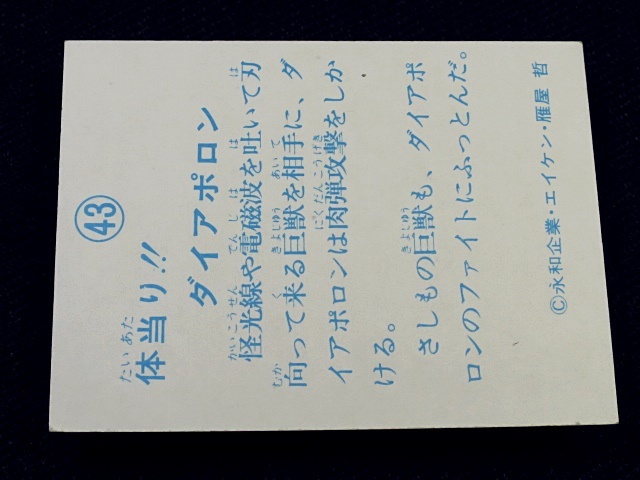 ㊸
体当り!!
ダイアポロン
怪光線や電磁波を吐いて刃
向って来る巨獣を相手に、ダ
イアポロンは肉弾攻撃をしか
ける。
さしもの巨獣も、ダイアポ
ロンのファイトにふっとんだ。
©永和企業・エイケン・雁屋 哲